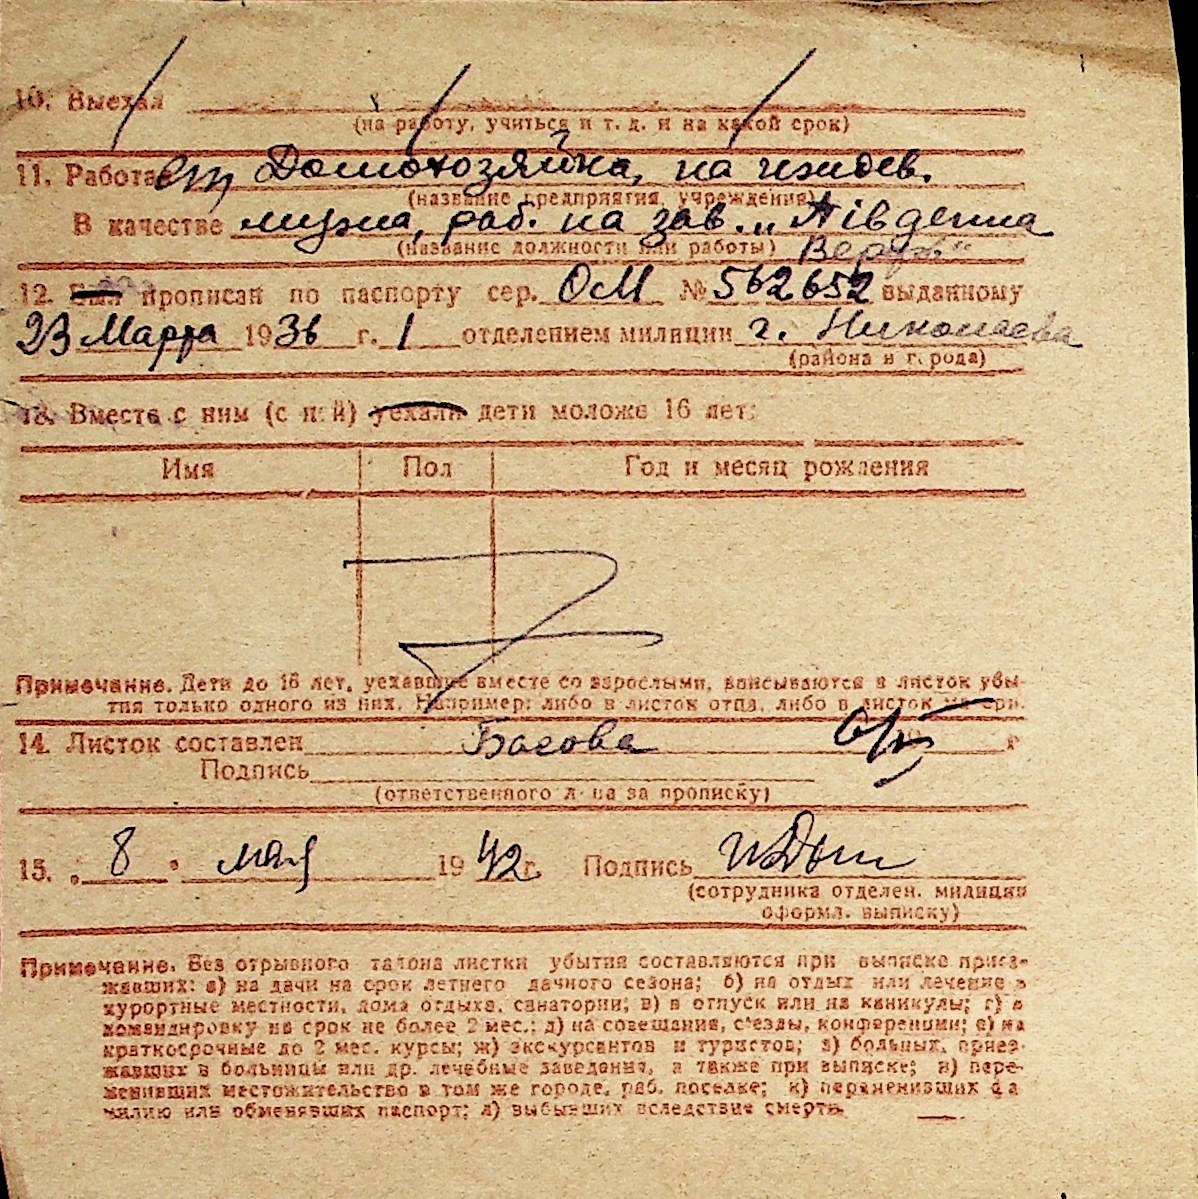 10. Выехал
(на работу, учиться и т. д. и на какой срок)
11. Работает Домохозяйка, на иждев.
(название предприятия, учреждения)
В качестве мужа, раб. на зав. „Південна
(название должности или работы) Верфь"
12. Был прописан по паспорту сер. ОМ № 562652 выданному
23 Марта 1936 г. 1 отделением милиции г. Николаева
(района и города)
13. Вместе с ним (с ней) уехали дети моложе 16 лет:
Имя Пол Год и месяц рождения
Примечание. Дети до 16 лет, уехавшие вместе со взрослыми, вписываются в листок убы-
тия только одного из них. Например: либо в листок отца, либо в листок матери.
14. Листок составлен Басова 19 г
Подпись
(ответственного л-ца за прописку)
15. „ 8 " мая 1942 г. Подпись
(сотрудника отделен. милиции
оформл. выписку)
Примечание. Без отрывного талона листки убытия составляются при выписке приез-
жавших: а) на дачи на срок летнего дачного сезона; б) на отдых или лечение в
курортные местности, дома отдыха, санатории; в) в отпуск или на каникулы; г) в
командировку на срок не более 2 мес.; д) на совещания, съезды, конференции; е) на
краткосрочные до 2 мес. курсы; ж) экскурсантов и туристов; з) больных, приез-
жавших в больницы или др. лечебные заведения, а также при выписке; и) пере-
менивших местожительство в том же городе, раб. поселке; к) переменивших фа
милию или обменявших паспорт; л) выбывших вследствие смерти.